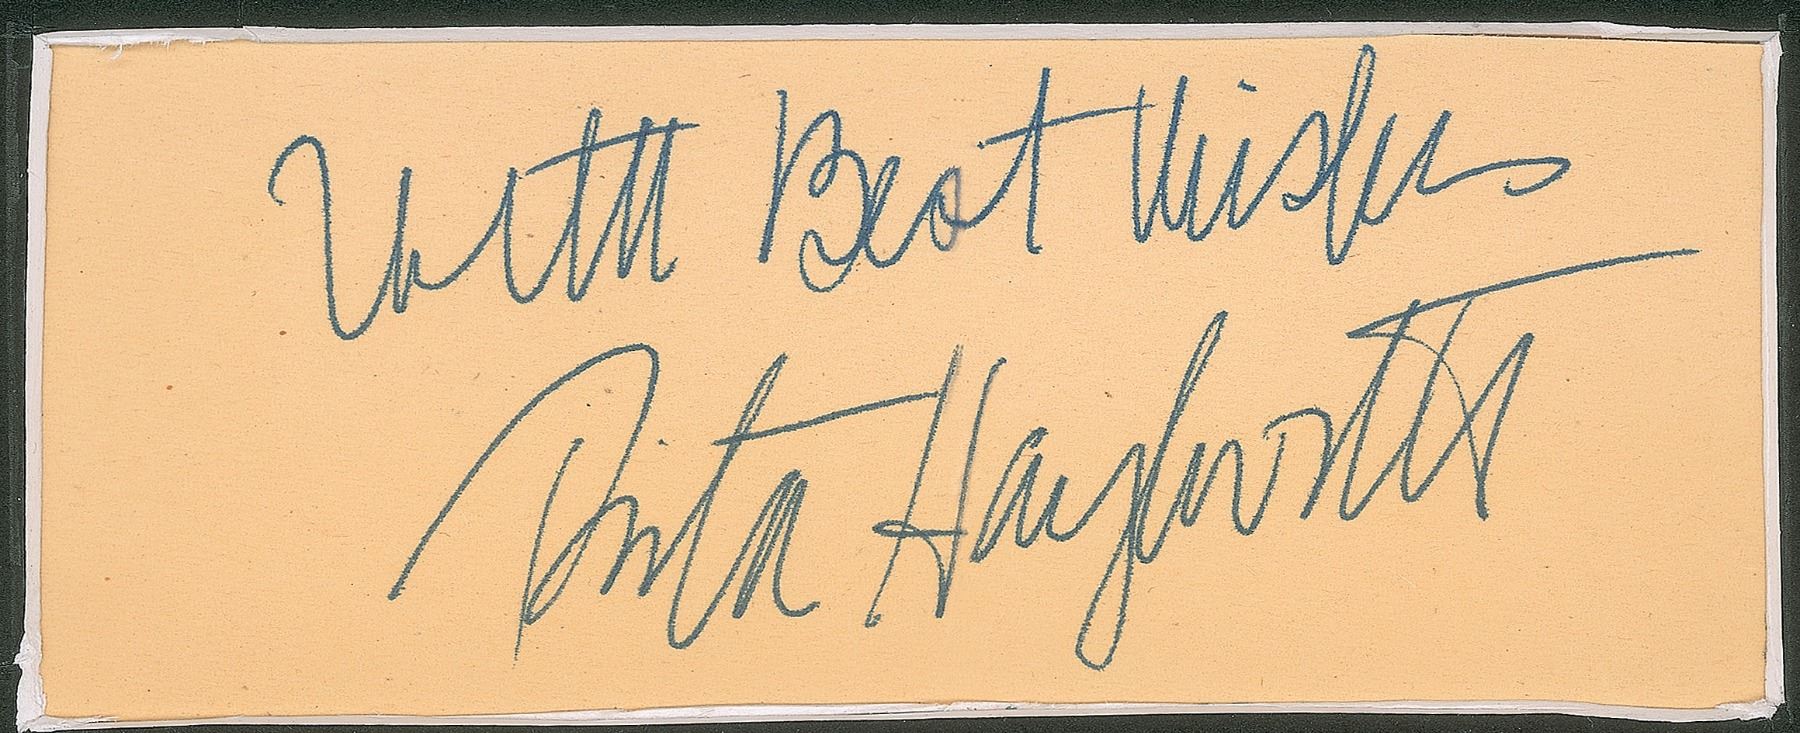 With Best Wishes
Rita Hayworth